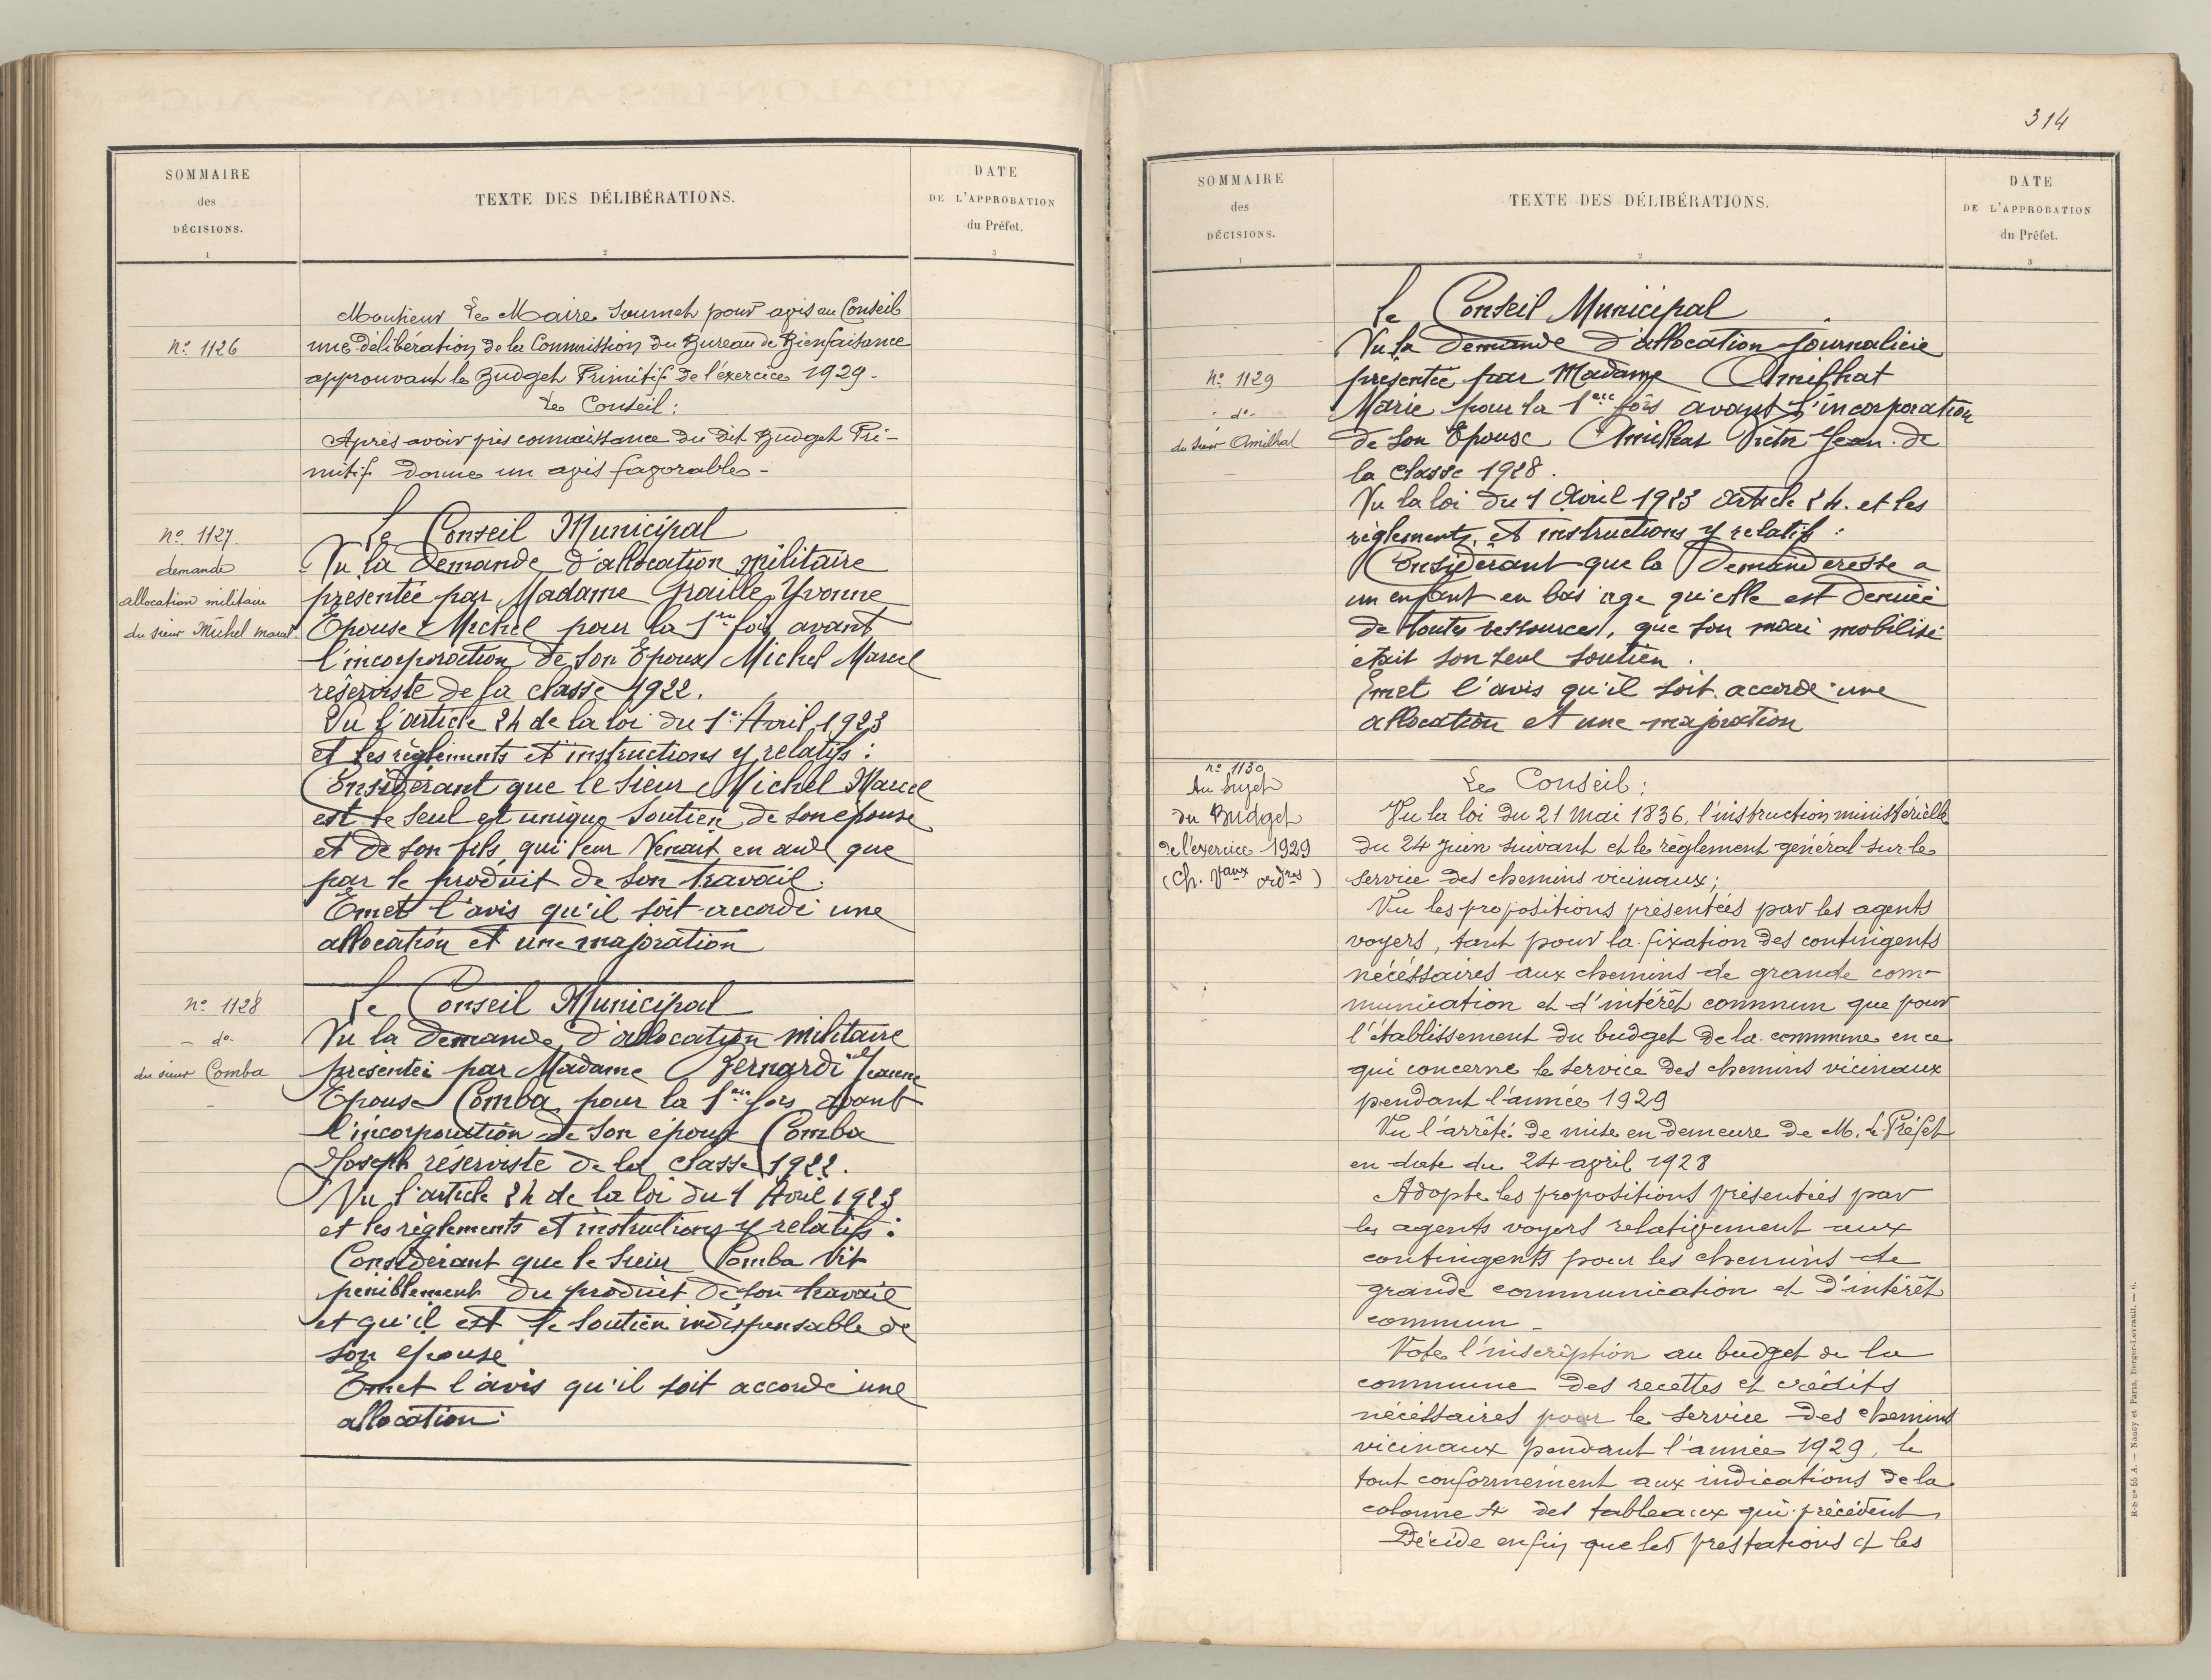 SOMMAIRE
des
DÉCISIONS.
1
TEXTE DES DÉLIBÉRATIONS.
2
DATE
DE L'APPROBATION
du Préfet.
3
Nº 1126
Monsieur Le Maire soumet pour avis au Conseil
une délibération de la Commission du Bureau de Bienfaisance
approuvant le Budget Primitif de l'exercice 1929.
Le Conseil:
Après avoir pris connaissance du dit Budget Pri-
mitif donne un avis favorable -
Nº 1127
demande
allocation militaire
du sieur Michel Marcel
Le Conseil Municipal
Vu la demande d'allocation militaire
présentée par Madame Graille Yvonne
Epouse Michel pour la 1ère fois avant
l'incorporation de son Epoux Michel Marcel
réserviste de la classe 1922.
Vu l'article 24 de la loi du 1er Avril 1923
et les règlements et instructions y relatifs:
Considérant que le sieur Michel Marcel
est le seul et unique soutien de son épouse
et de son fils qui leur venait en aide que
par le produit de son travail.
Emet l'avis qu'il soit accordé une
allocation et une majoration
Nº 1128
- dº -
du sieur Comba
-
Le Conseil Municipal
Vu la demande d'allocation militaire
présentée par Madame Bernardi Jeanne
Epouse Comba pour la 1ère fois avant
l'incorporation de son époux Comba
Joseph réserviste de la classe 1922.
Vu l'article 24 de la loi du 1 Avril 1923
et les règlements et instructions y relatifs:
Considérant que le sieur Comba vit
péniblement du produit de son travail
et qu'il est le soutien indispensable de
son épouse
Emet l'avis qu'il soit accordé une
allocation.
314
SOMMAIRE
des
DÉCISIONS.
1
TEXTE DES DÉLIBÉRATIONS.
2
DATE
DE L'APPROBATION
du Préfet.
3
Nº 1129
- dº -
du sieur Amilhat
-
Le Conseil Municipal
Vu la demande d'allocation journalière
présentée par Madame Amilhat
Marie pour la 1ère fois avant l'incorporation
de son Epouse Amilhat Jean de
la classe 1928.
Vu la loi du 1 Avril 1923 article 24. et les
règlements et instructions y relatifs:
Considérant que la Demanderesse a
un enfant en bas age qu'elle est dénuée
de toutes ressources, que son mari mobilisé
était son seul soutien.
Emet l'avis qu'il soit accordé une
allocation et une majoration
nº 1130
Au sujet
du Budget
de l'exercice 1929
(Ch. Vaux ordres)
Le Conseil:
Vu la loi du 21 Mai 1836, l'instruction ministérielle
du 24 Juin suivant et le règlement général sur le
service des chemins vicinaux;
Vu les propositions présentées par les agents
voyers, tant pour la fixation des contingents
nécéssaires aux chemins de grande com-
munication et d'intérêt commun que pour
l'établissement du budget de la commune en ce
qui concerne le service des chemins vicinaux
pendant l'année 1929
Vu l'arrêté de mise en demeure de M. le Préfet
en date du 24 avril 1928
Adopte les propositions présentées par
les agents voyers relativement aux
contingents pour les chemins de
grande communication et d'intérêt
commun -
Vote l'inscription au budget de la
commune des recettes et crédits
nécéssaires pour le service des chemins
vicinaux pendant l'année 1929, le
tout conformément aux indications de la
colonne 4 des tableaux qui précédent
Décide enfin que les prestations et les
R-b nº 55 A. — Nancy et Paris, Berger-Levrault. — 6.